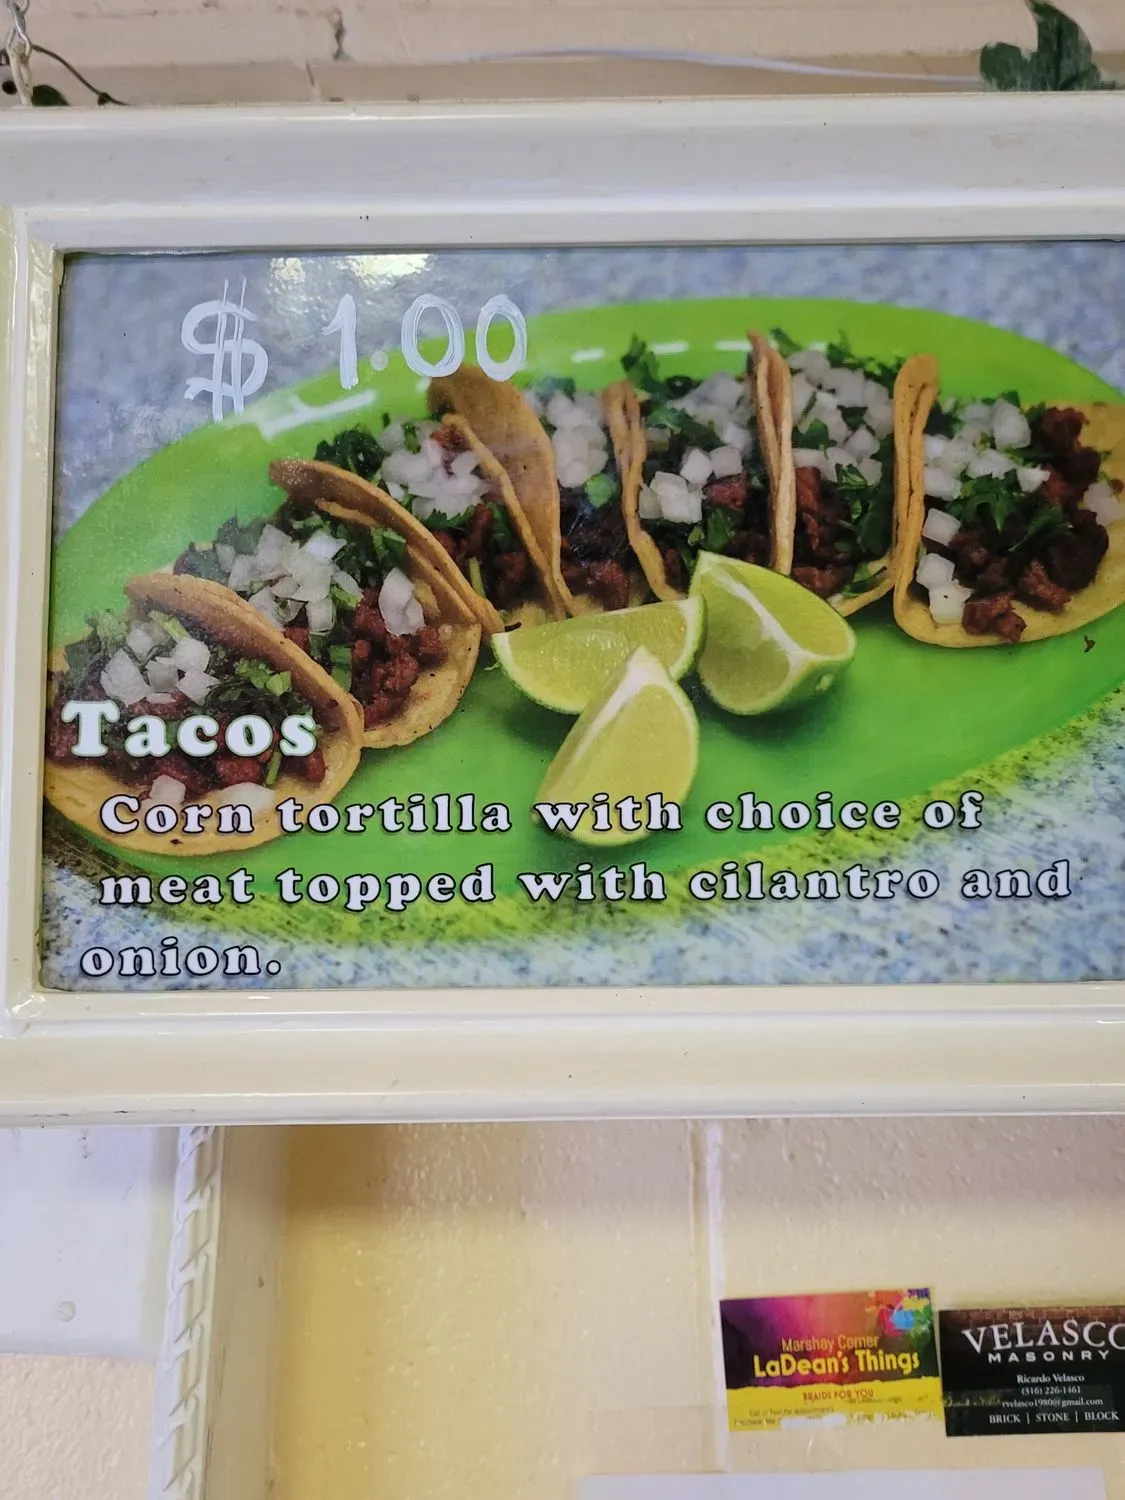 $ 1.00
Tacos
Corn tortilla with choice of
meat topped with cilantro and
onion.
Marshay Corner
LaDean's Things
BRAIDS FOR YOU
VELASCO
MASONRY
Ricardo Velasco
(316) 226-1461
rvelasco1980@gmail.com
BRICK | STONE | BLOCK